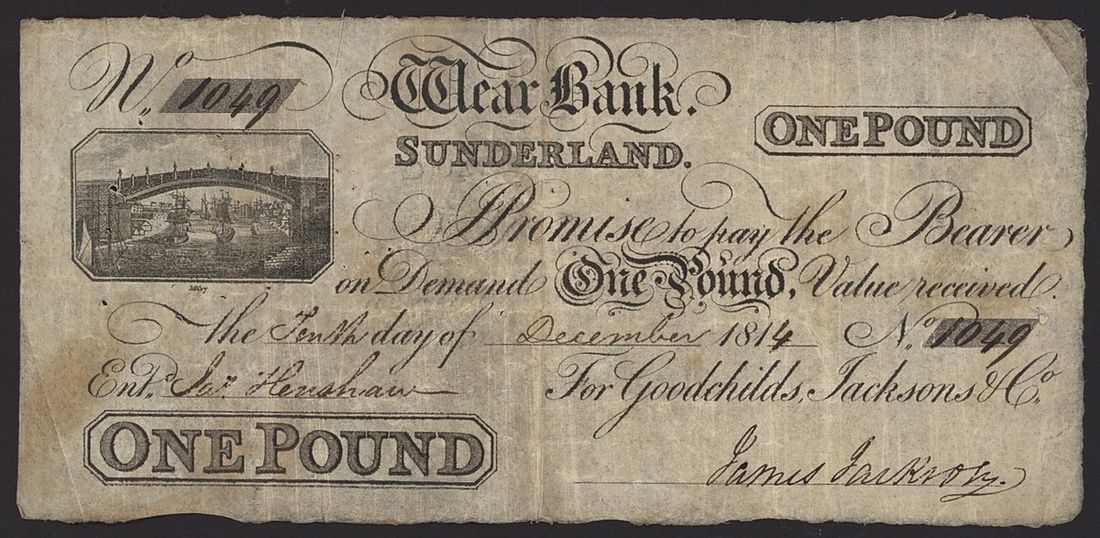 No. 1049
Wear Bank.
SUNDERLAND.
ONE POUND
I Promise to pay the Bearer
on Demand One Pound, Value received.
the Tenth day of December 1814 No. 1049
Entd. Jas. Henshaw
For Goodchilds, Jacksons & Co.
ONE POUND
James Jackson